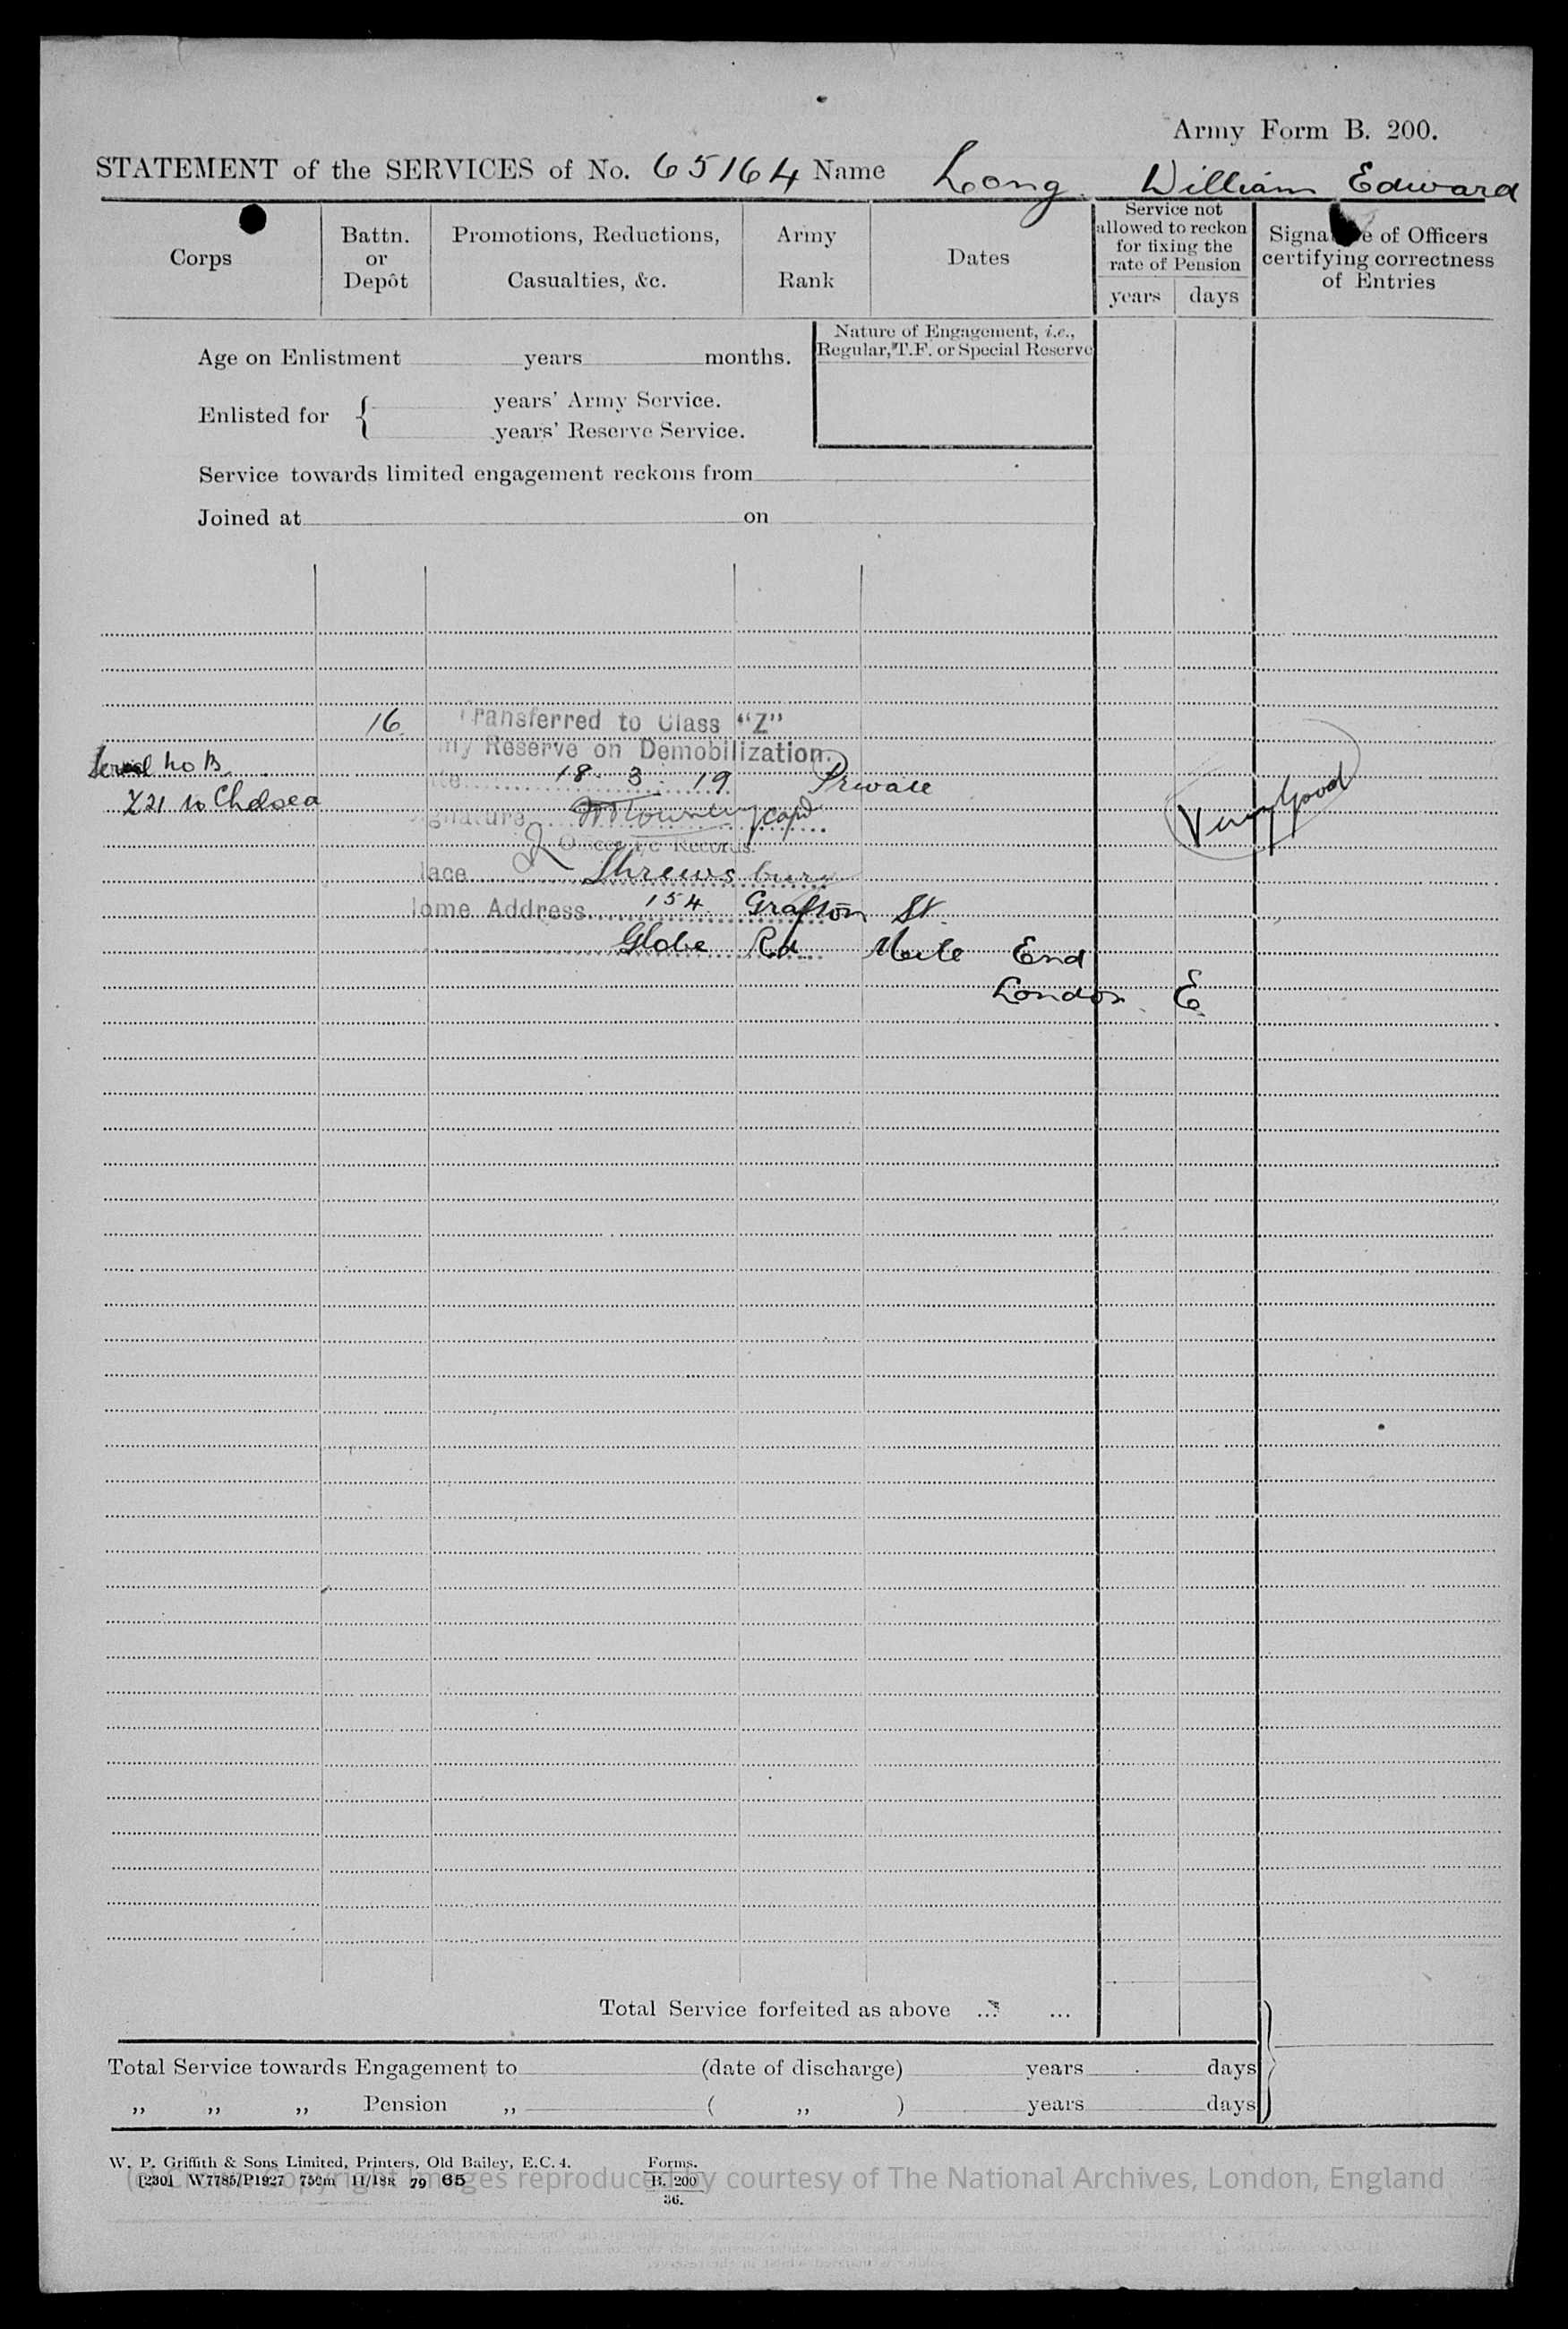 Army Form B. 200.
STATEMENT of the SERVICES of No. 65164 Name Long William Edward
Corps
Battn. or Depôt
Promotions, Reductions, Casualties, &c.
Army Rank
Dates
Service not allowed to reckon for fixing the rate of Pension
years days
Signa e of Officers certifying correctness of Entries
Age on Enlistment years months.
Nature of Engagement, i.e., Regular, T.F. or Special Reserve
Enlisted for { years' Army Service.
years' Reserve Service.
Service towards limited engagement reckons from
Joined at on
16 Transferred to Class "Z"
my Reserve on Demobilization.
No B
18. 3. 19 Private
Z21 to Chelsea
ignature Capt
Very Good
Officer i/c Records.
lace Shrewsbury
Home Address 154 Grafton St.
Globe Rd Mile End
London E
Total Service forfeited as above ... ...
Total Service towards Engagement to (date of discharge) years days
,, ,, ,, Pension ,, ( ,, ) years days
W. P. Griffith & Sons Limited, Printers, Old Bailey, E.C. 4.
[230] W7785/P1927 750m 11/18R 79 65
Forms.
B. 200
36.
(c) Crown Copyright Images reproduced by courtesy of The National Archives, London, England